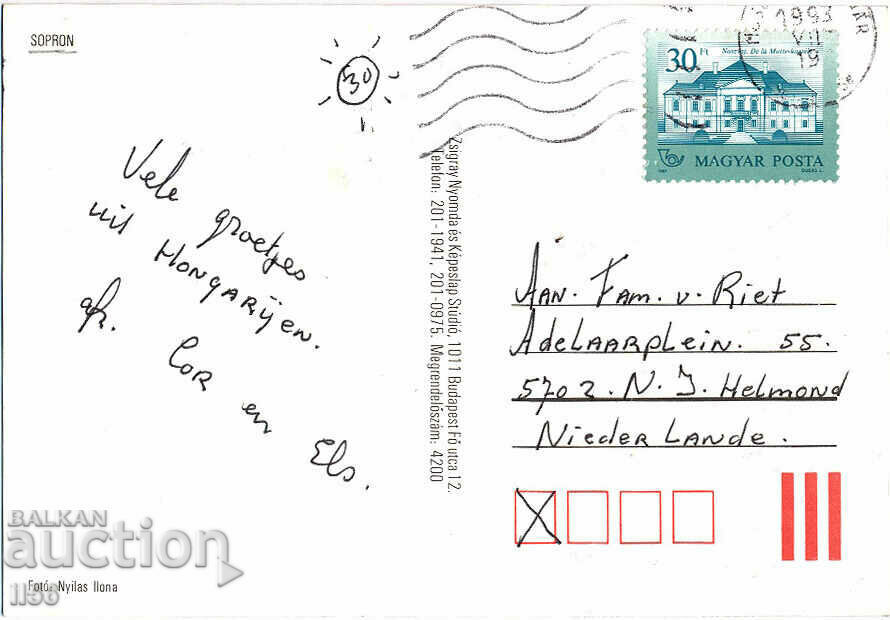 SOPRON
30
Vele groetjes
uit Hongarijen.
afz.
Cor en Els.
Fotó: Nyilas Ilona
Zsigray Nyomda és Képeslap Stúdió, 1011 Budapest Fő utca 12.
Telefon: 201-1941, 201-0975. Megrendelőszám: 4200
1993
VII
19
30 Ft
MAGYAR POSTA
Aan. Fam. v. Riet
Adelaarplein. 55.
5702. N. J. Helmond
Niederlande.
BALKAN
auction
1156